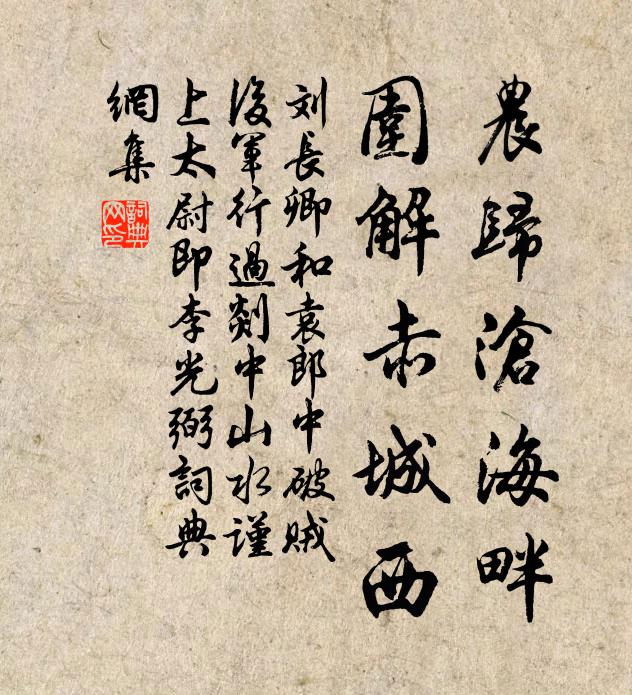 農歸滄海畔
圍解赤城西
刘長卿和袁郎中破賊
後軍行過剡中山水謹
上太尉即李光弼詞典
網集
詞典
网印